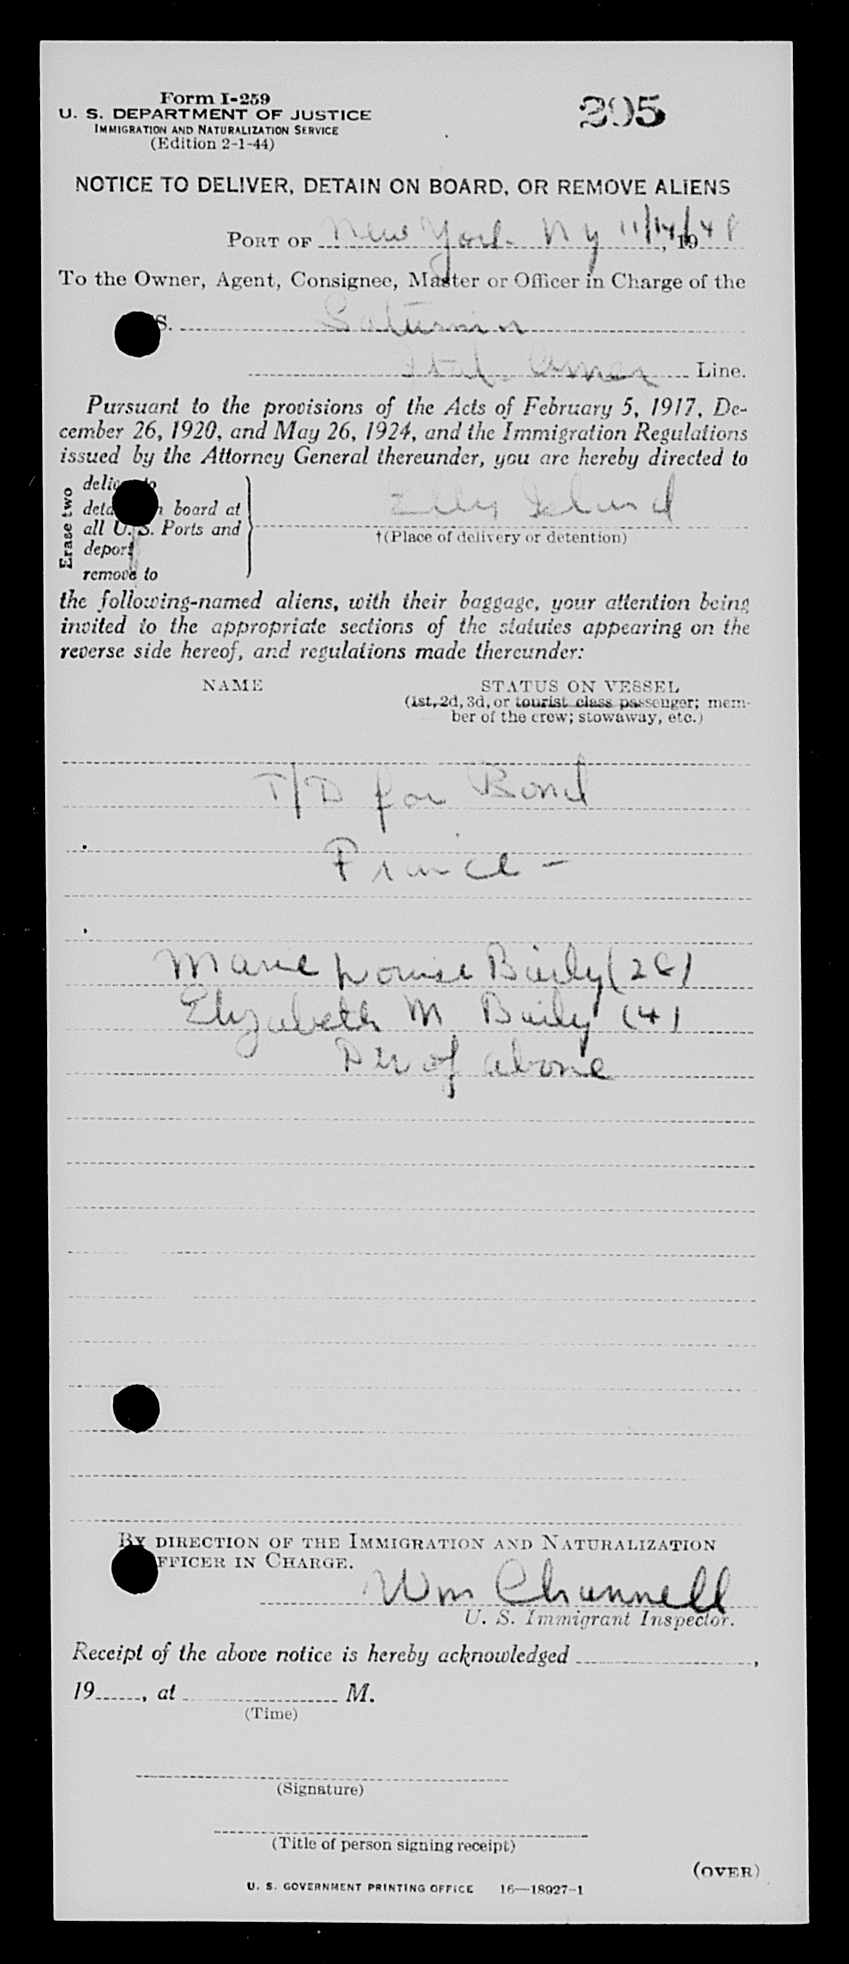 Form I-259
U. S. DEPARTMENT OF JUSTICE
IMMIGRATION AND NATURALIZATION SERVICE
(Edition 2-1-44)
295
NOTICE TO DELIVER, DETAIN ON BOARD, OR REMOVE ALIENS
PORT OF New York NY 11/14/, 1948
To the Owner, Agent, Consignee, Master or Officer in Charge of the
S. Saturnia
Ital. Amer Line.
Pursuant to the provisions of the Acts of February 5, 1917, De-
cember 26, 1920, and May 26, 1924, and the Immigration Regulations
issued by the Attorney General thereunder, you are hereby directed to
Erase two
board at
all U. S. Ports and
deport
remove to
Ellis Island
†(Place of delivery or detention)
the following-named aliens, with their baggage, your attention being
invited to the appropriate sections of the statutes appearing on the
reverse side hereof, and regulations made thereunder:
NAME STATUS ON VESSEL
(1st, 2d, 3d, or tourist class passenger; mem-
ber of the crew; stowaway, etc.)
T/D for Bond
Marie Louise (26)
Elizabeth M (4)
of above
BY DIRECTION OF THE IMMIGRATION AND NATURALIZATION
OFFICER IN CHARGE.
Wm Channell
U. S. Immigrant Inspector.
Receipt of the above notice is hereby acknowledged ,
19 , at M.
(Time)
(Signature)
(Title of person signing receipt)
(OVER)
U. S. GOVERNMENT PRINTING OFFICE 16—18927-1